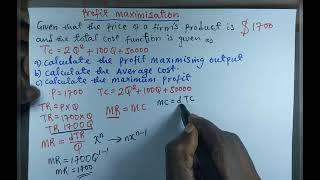 Profit maximisation
Given that the price of a firm is product is $1700
and the total cost function is given as
TC = 2Q² + 100Q + 50000
a) calculate the profit maximising output
b) calculate the Average cost.
c) calculate the maximum profit
P = 1700 TC = 2Q² + 100Q + 50000
TR = P x Q
TR = 1700 x Q
TR 1700Q
MR = MC
MC = d TC
MR = dTR xⁿ → nxⁿ⁻¹
MR = 1700Q¹⁻¹
MR = 1700